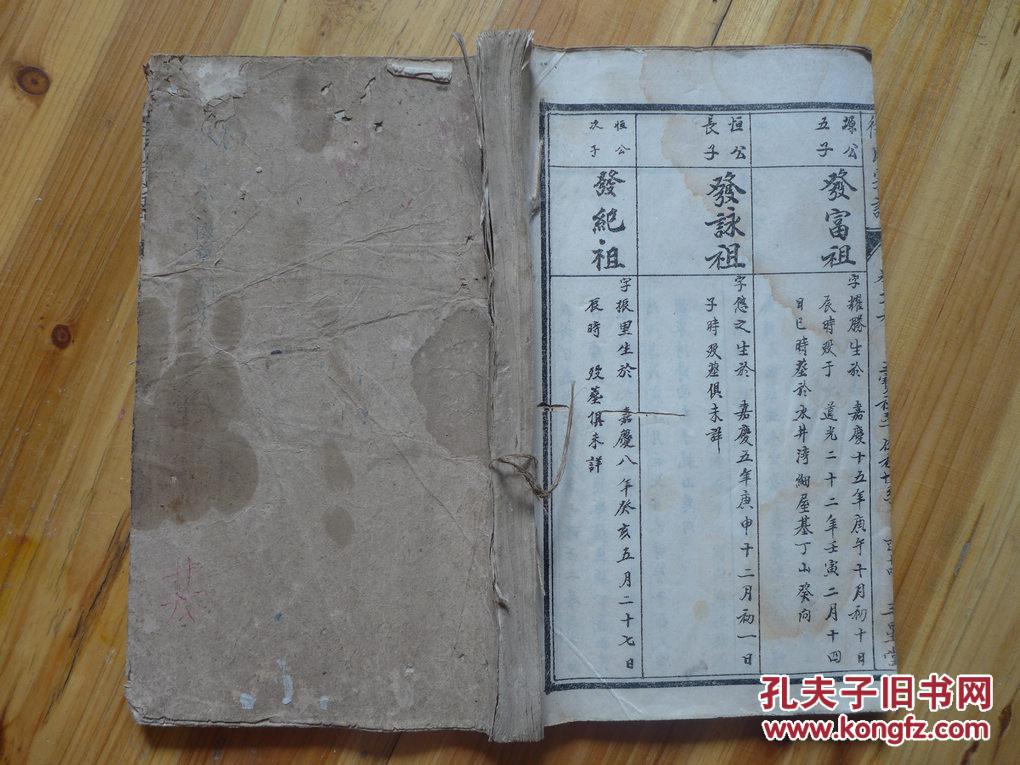 塬公
五子
發富祖
字耀勝生於 嘉慶十五年庚午十月初十日
辰時歿于 道光二十二年壬寅二月十四
日巳時塟於水井湾細屋基丁山癸向
恒公
長子
發詠祖
字悠之生於 嘉慶五年庚申十二月初一日
子時歿塟俱未詳
恒公
次子
發紀祖
字振里生於 嘉慶八年癸亥五月二十七日
辰時 歿墓俱未詳
三
堂
孔夫子旧书网
www.kongfz.com